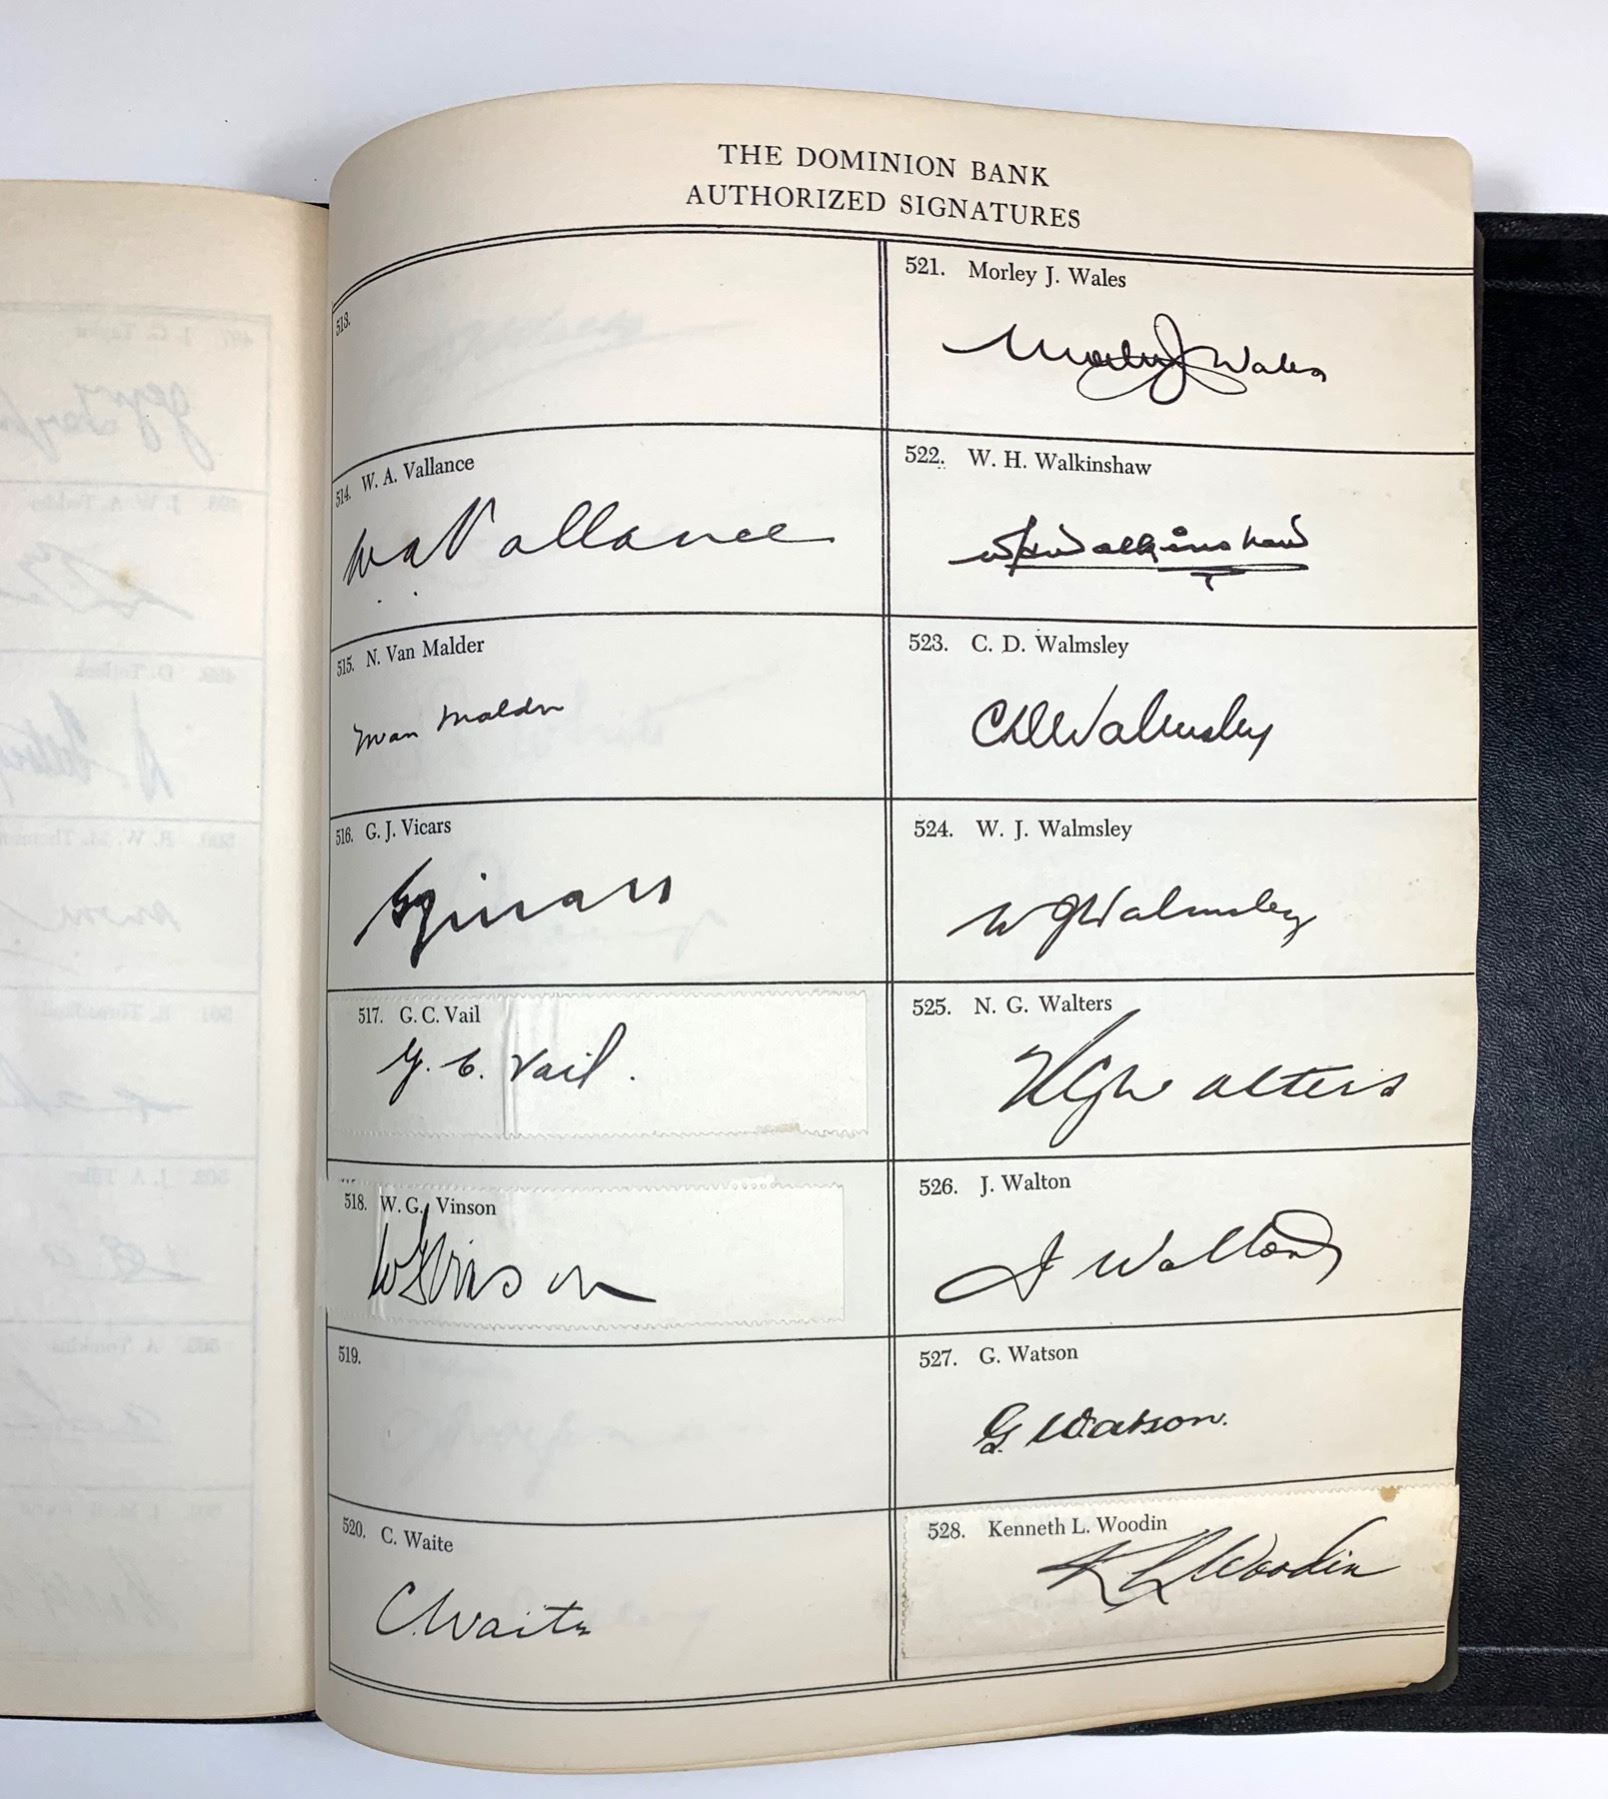 THE DOMINION BANK
AUTHORIZED SIGNATURES
513.
514. W. A. Vallance
WA Vallance
515. N. Van Malder
N Van Malder
516. G. J. Vicars
GJ Vicars
517. G. C. Vail
G. C. Vail.
518. W. G. Vinson
WG Vinson
519.
520. C. Waite
C. Waite
521. Morley J. Wales
Morley J Wales
522. W. H. Walkinshaw
WH Walkinshaw
523. C. D. Walmsley
CD Walmsley
524. W. J. Walmsley
WJ Walmsley
525. N. G. Walters
NG Walters
526. J. Walton
J Walton
527. G. Watson
G Watson.
528. Kenneth L. Woodin
KL Woodin